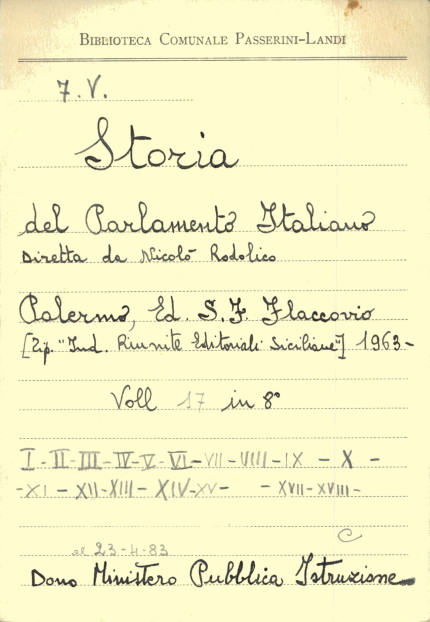 BIBLIOTECA COMUNALE PASSERINI-LANDI
7. V.
Storia
del Parlamento Italiano
Diretta da Nicolò Rodolico
Palermo, Ed. S. F. Flaccovio
[Tip. "Ind. Riunite Editoriali Siciliane"] 1963-
Voll 17 in 8°
I - II - III - IV - V - VI - VII - VIII - IX - X -
- XI - XII - XIII - XIV - XV - - XVII - XVIII -
C
al 23-4-83
Dono Ministero Pubblica Istruzione